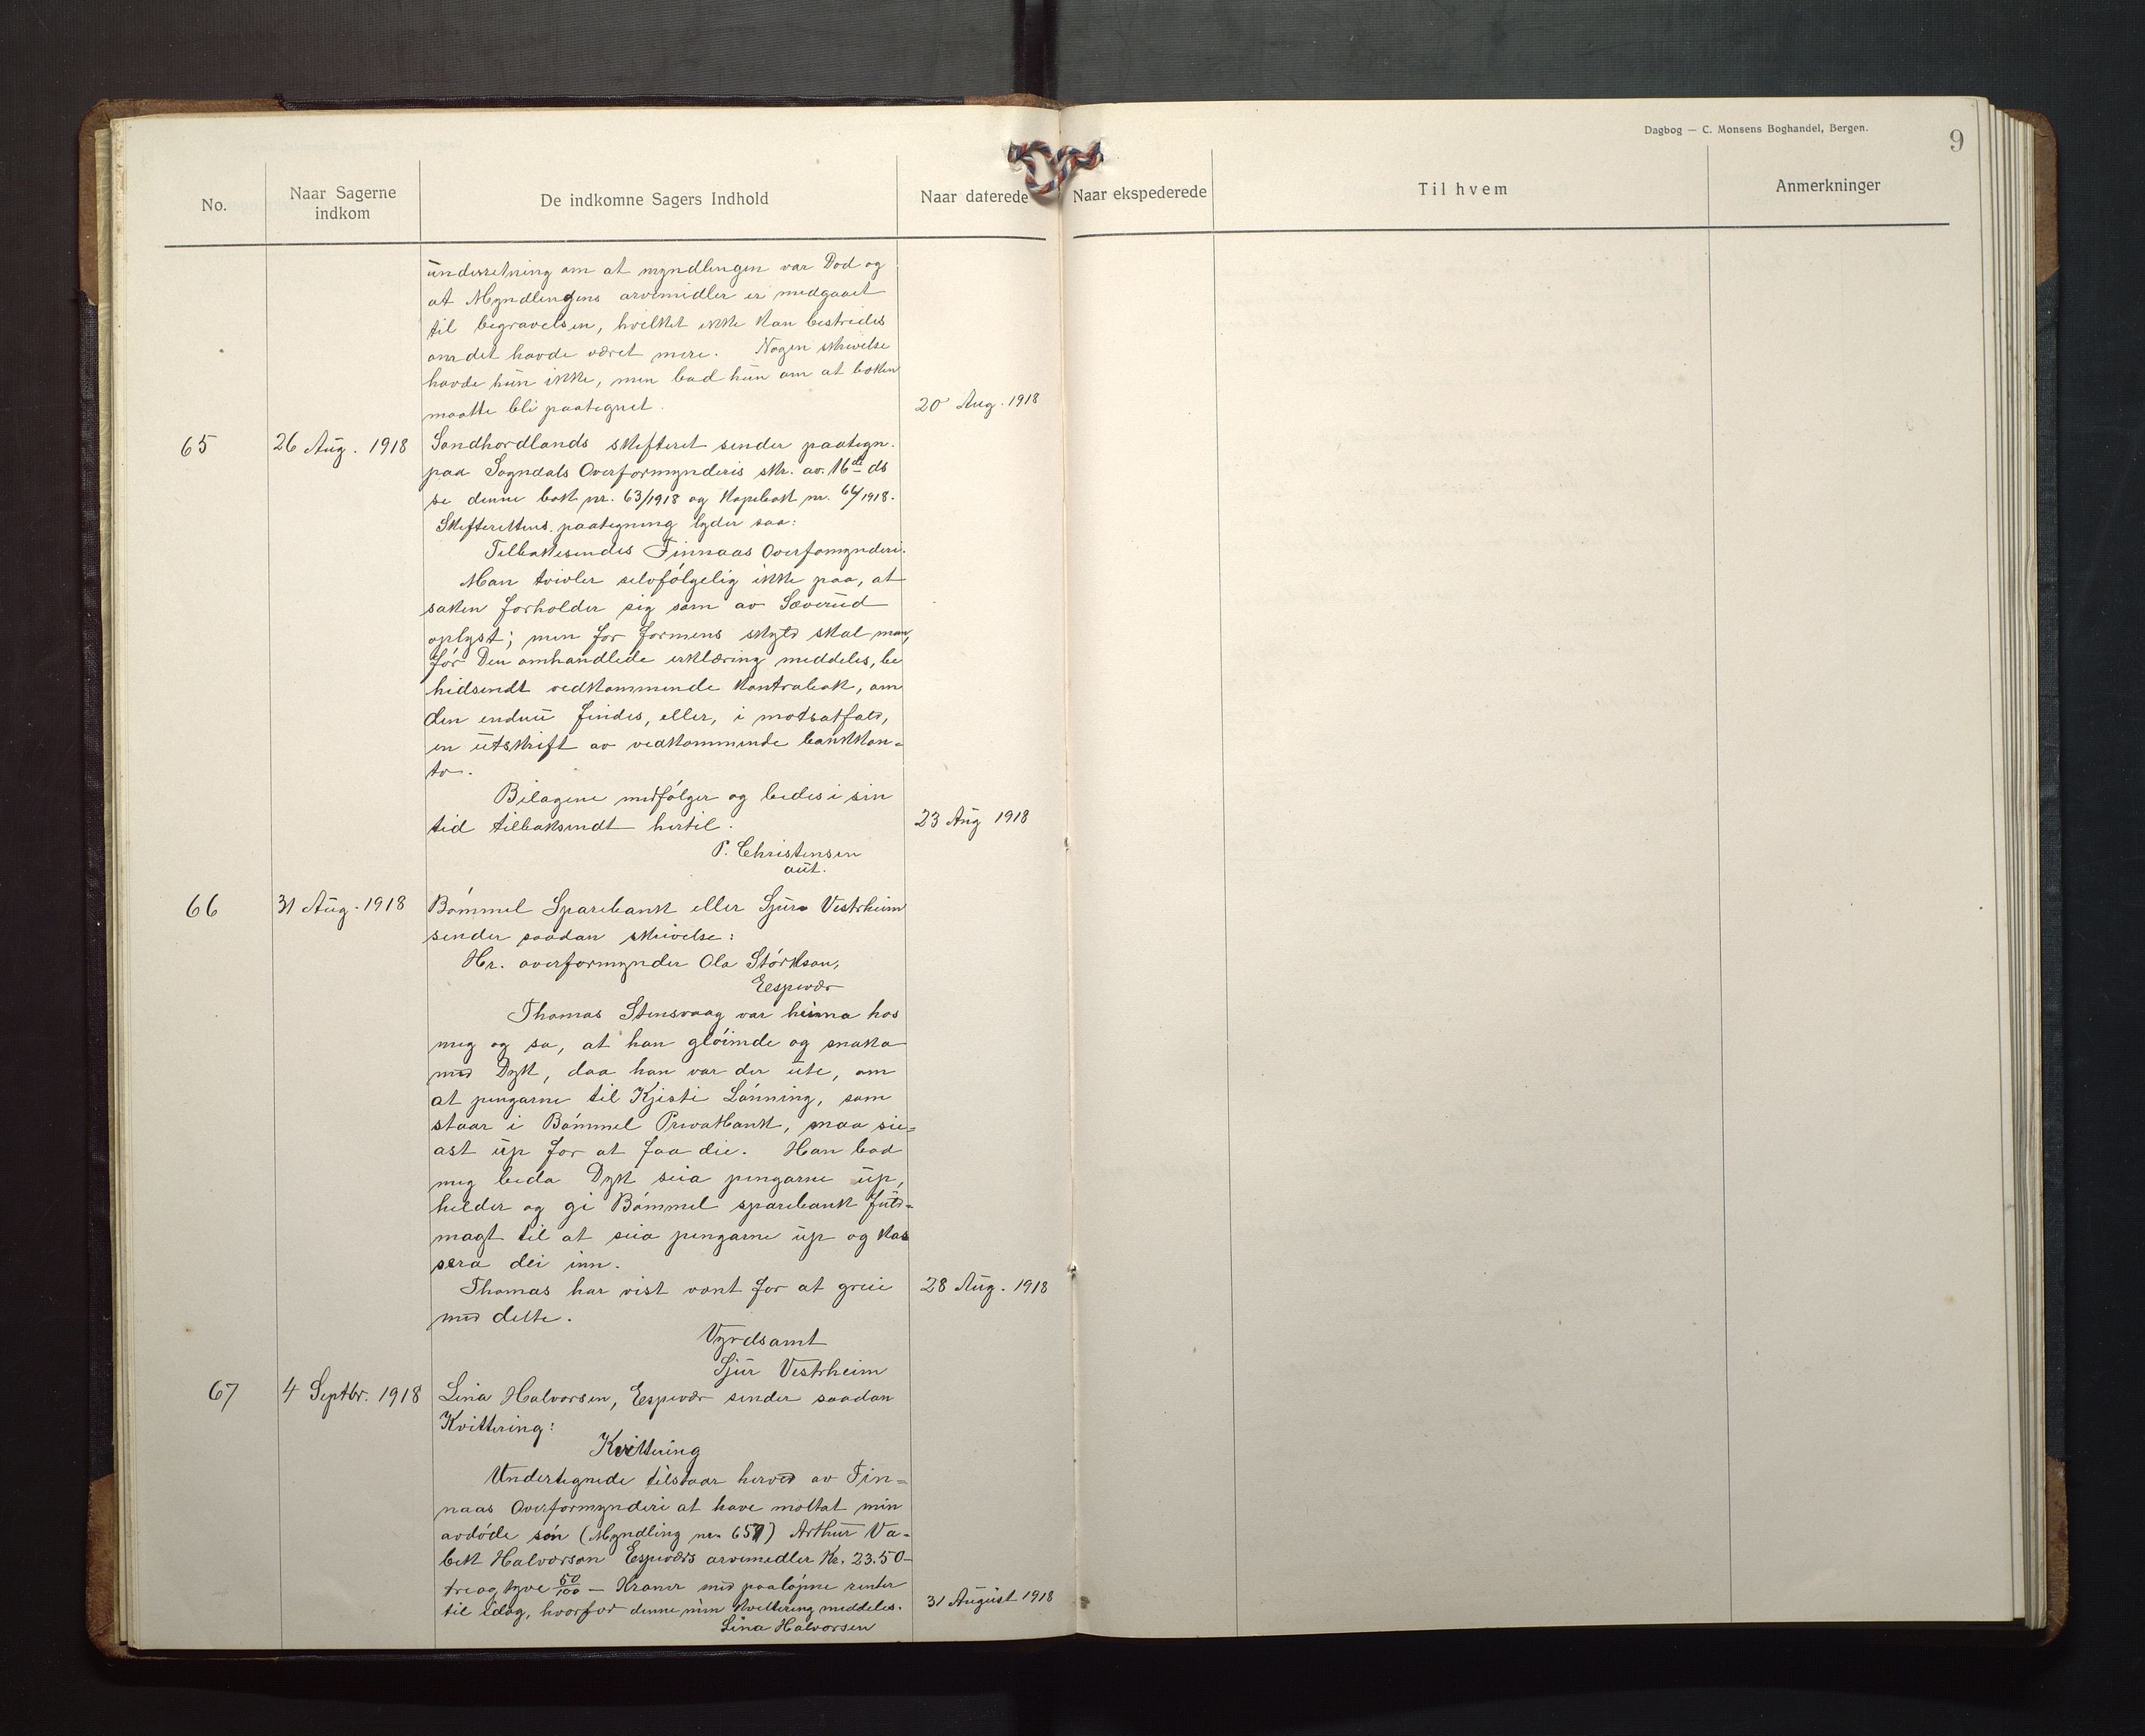 Dagbog — C. Monsens Boghandel, Bergen.
9
No.
Naar Sagerne indkom
De indkomne Sagers Indhold
Naar daterede
Naar ekspederede
Til hvem
Anmerkninger
underretning om at myndlingen var Død og
at Myndlingens arvemidler er medgaaet
til begravelsen, hvilket ikke kan bestrides
om det havde været mere. Nogen skrivelse
havde hun ikke, men bad hun om at boken
maatte bli paategnet. 20 Aug. 1918
65 26 Aug. 1918 Søndhordlands skifteret sender paategn.
paa Sogndals Overformynderis skr. av. 16de ds
se denne bok nr. 63/1918 og Kopibok nr. 66/1918.
Skifterettens paategning lyder saa:
Tilbakesendes Finnaas Overfomynderi.
Man tviler selvfølgelig ikke paa, at
saken forholder sig som av Sæverud
oplyst; men for formens skyld skal man,
før Den omhandlede erklæring meddeles, be
hidsendt vedkommende Kontrabok, om
den endnu findes, eller, i motsatfald,
en utskrift av vedkommende bankkon-
to.
Bilagene medfølger og bedes i sin
tid tilbaksendt hertil. 23 Aug 1918
P. Christensen
aut.
66 31 Aug. 1918 Bømmel Sparebank eller Sjur Vestrheim
sender saadan skrivelse:
Hr. overformynder Ola Størkson,
Eespevær
Thomas Stensvaag var heima hos
meg og sa, at han gløimde og snaka
med Dykk, daa han var der ute, om
at pengarne til Kjisti Lønning, som
staar i Bømmel Privatbank, maa sei-
ast up for at faa dei. Han bad
meg beda Dykk seia pengarne up,
helder og gi Bømmel sparebank fuld-
magt til at seia pengarne up og kas
sera dei inn.
Thomas har vist vont for at greie 28 Aug. 1918
med dette.
Vyrdsamt
Sjur Vestrheim
67 4 Septbr. 1918 Lina Halvorsen, Eespevær sender saadan
Kvittering:
Kvittering
Undertegnede tilstaar herved av Fin-
naas Overformynderi at have mottat min
avdøde søn (Myndling nr. 657) Arthur Va-
bek Halvorson Espeværs arvemidler Kr. 23.50-
treogtyve 50/100 — Kroner med paaløpne renter
til idag, hvorfor denne min Kvittering meddeles. 31 August 1918
Lina Halvorsen